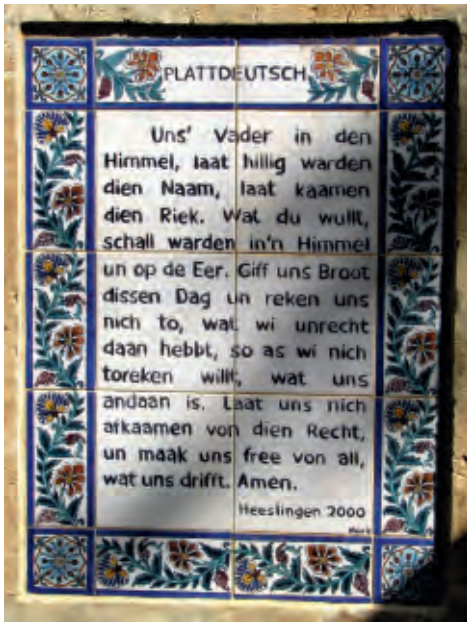 PLATTDEUTSCH
Uns' Vader in den
Himmel, laat hillig warden
dien Naam, laat kaamen
dien Riek. Wat du wullt,
schall warden in'n Himmel
un op de Eer. Giff uns Broot
dissen Dag un reken uns
nich to, wat wi unrecht
daan hebbt, so as wi nich
toreken willt, wat uns
andaan is. Laat uns nich
afkaamen von dien Recht,
un maak uns free von all,
wat uns drifft. Amen.
Heeslingen 2000